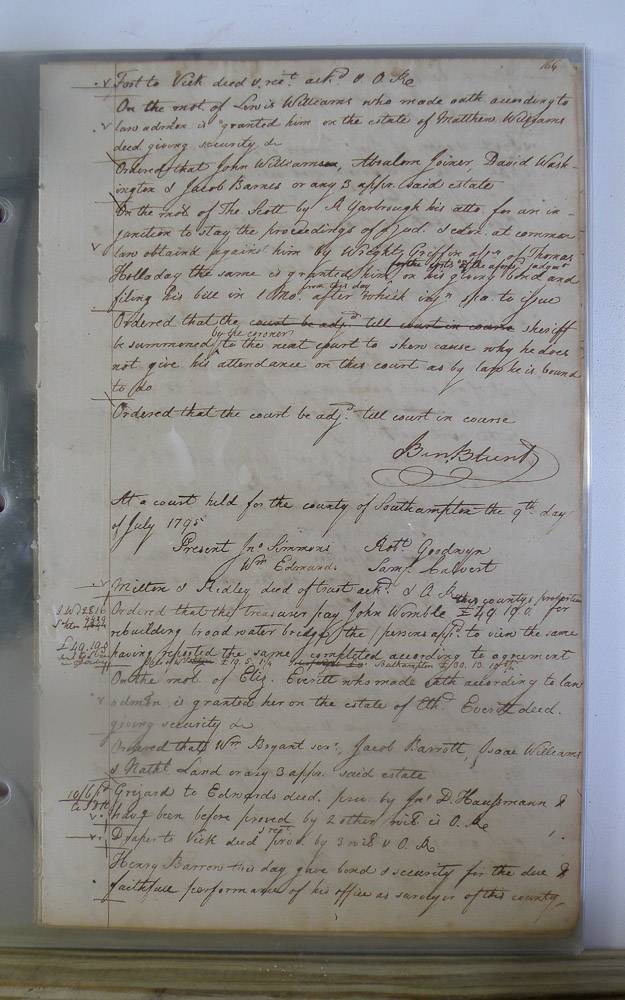 164
Fort to Vick deed & rect. ackd & O. Re
On the mot. of Lewis Williams who made oath according to
law admon is granted him on the estate of Matthew Williams
decd. giving security &c
Ordered that John Williamson, Absalom Joiner, David Wash-
ington & Jacob Barnes or any 3 appr. said estate
On the mot. of Tho. Scott by A Yarbrough his atto. for an in-
junction to stay the proceedings of a jud. & exon. at common
law obtaind against him by Wright Griffin assn. of Thomas
Holladay the same is granted him on his giving bond and
filing his bill in 1 Mo. from this day after which injn. spa. to issue
Ordered that the court be adjd. till court in course sheriff
be summoned by the coroner to the next court to shew cause why he does
not give his attendance on this court as by law he is bound
to do
Ordered that the court be adjd. till court in course
Ben. Blunt
At a court held for the county of Southampton the 9th. day
of July 1795
Present Jno. Simmons Robt. Goodwyn
Wm Edmunds Saml. Calvert
Milton & Ridley deed of trust ackd. & O. Re
Ordered that the treasurer pay John Womble this county's proportion £49.19.0. for
rebuilding broad water bridge, the persons appd. to view the same
having reported the same completed according to agreement
£19.5.1¼ Southampton £30.13.10¾
On the mot. of Eliz. Everitt who made oath according to law
admon. is granted her on the estate of Everitt decd.
giving security &c
Ordered that Wm Bryant senr., Jacob Barrott, Isaac Williams
& Nathl. Land or any 3 appr. said estate
10/6 pd
Grizard to Edwards deed. prov. by Jno. D. Haussmann &
havg been before proved by 2 other wit. is O. Re
Draper to Vick deed & rect. prov. by 3 wit & O. Re
Henry Barrow this day gave bond & security for the due &
faithfull performance of his office as surveyor of this county,